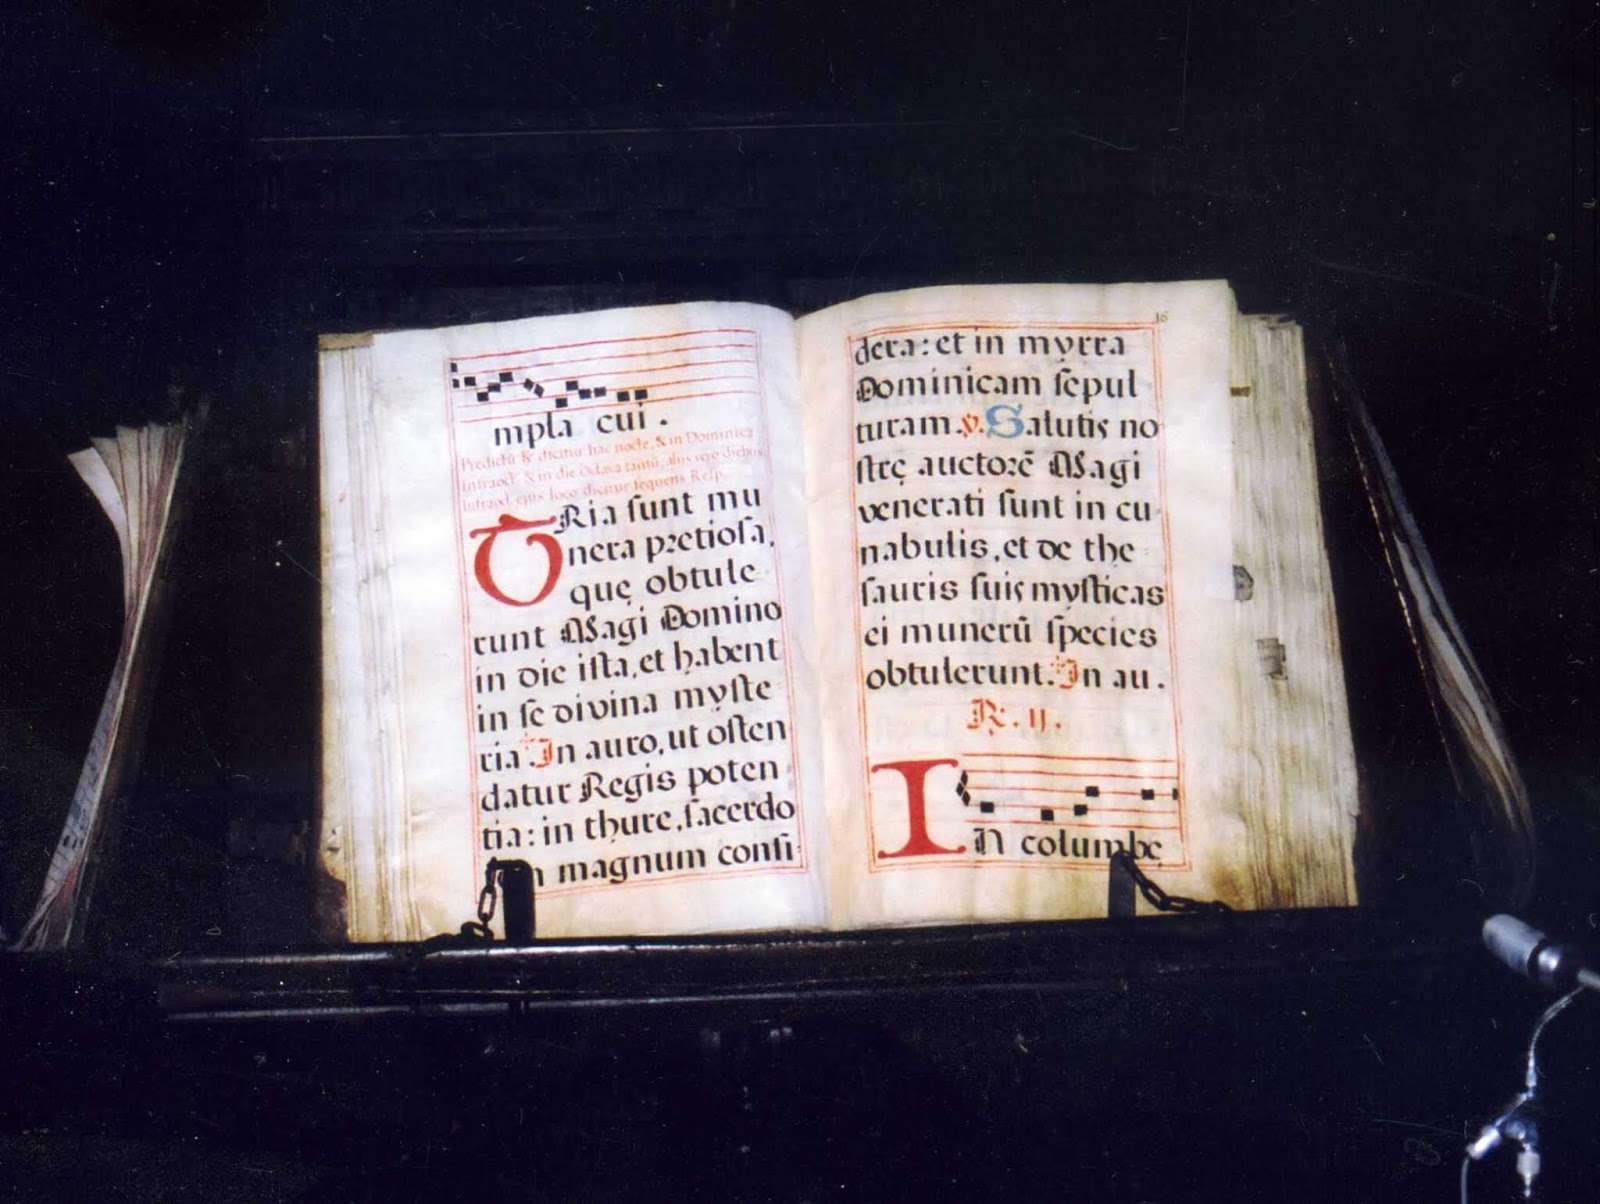 mpla cui.
Predictũ ℟ dicitur hac nocte, & in Dominica
Infraoct. & in die Octava tantũ, aliis vero diebus
Infraoct. ejus loco dicitur sequens Resp.
TRia sunt mu
nera pretiosa,
quę obtule
runt Magi Domino
in die ista, et habent
in se divina myste
ria. In auro, ut osten
datur Regis poten
tia: in thure, sacerdo
magnum consi
16
dera: et in myrra
Dominicam sepul
turam ℣. Salutis no
strę auctorẽ Magi
venerati sunt in cu
nabulis, et de the
sauris suis mysticas
ei munerũ species
obtulerunt. In au.
℟. ij.
IN columbę